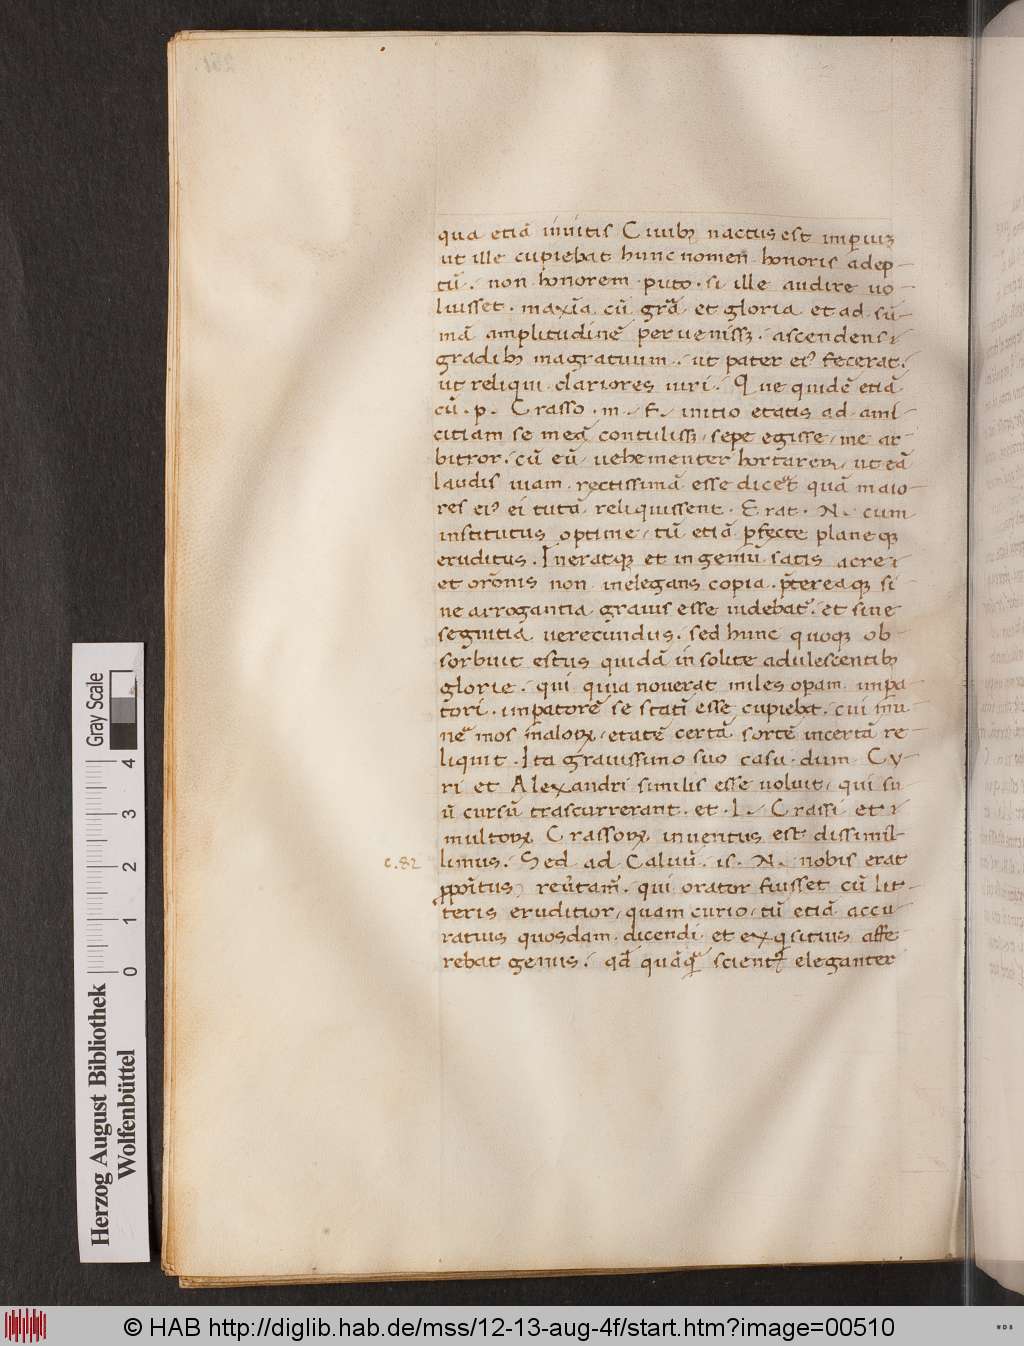 qua etiā inuitis Ciuibꝫ nactus est imperiuꝫ
ut ille cupiebat hunc nomen honoris adep-
tū. non honorem puto. si ille audire uo-
luisset. maxīa cū grā et gloria et ad sū-
mā amplitudinē peruenissꝫ. ascendens
gradibꝫ magratuum. ut pater eiꝰ fecerat.
ut reliqui clariores uiri. Que quidē etiā
cū. p. Crasso. m. F. initio etatis ad ami-
citiam se meā contulissꝫ, sepe egisse, me ar-
bitror. cū eū uehementer hortarer, ut eā
laudis uiam rectissimā esse diceret quā maio-
res eiꝰ ei tutā reliquissent. Erat. N. cum
institutus optime, tū etiā pfecte planeqꝫ
eruditus. Ineratqꝫ et ingeniū satis acre
et orōnis non inelegans copia. ptereaqꝫ si
ne arrogantia grauis esse uidebatꝰ. et sine
segnitia uerecundus. sed hunc quoqꝫ ob-
sorbuit estus quidā insolite adulescentibꝫ
glorie. qui quia nouerat miles opam impa
tori. impatorē se statī esse cupiebat. cui mu-
nē mos maloꝝ, etatē certā sortē incertā re
liquit. Ita grauissimo suo casu dum Cy-
ri et Alexandri similis esse uoluit, qui su-
ū cursū trascurrerant. et. L. Crassi et
multoꝝ Crassoꝝ inuentus est dissimil-
c. 82 limus. Sed ad Caluū. is. N. nobis erat
pposītus reutam. qui orator fuisset cū lit-
teris eruditior, quam curio, tū etiā accu-
ratius quosdam dicendi et exqsitius affe
rebat genus. qđ quāqꝫ scienter eleganter
Gray Scale
0 1 2 3 4
Herzog August Bibliothek
Wolfenbüttel
© HAB http://diglib.hab.de/mss/12-13-aug-4f/start.htm?image=00510